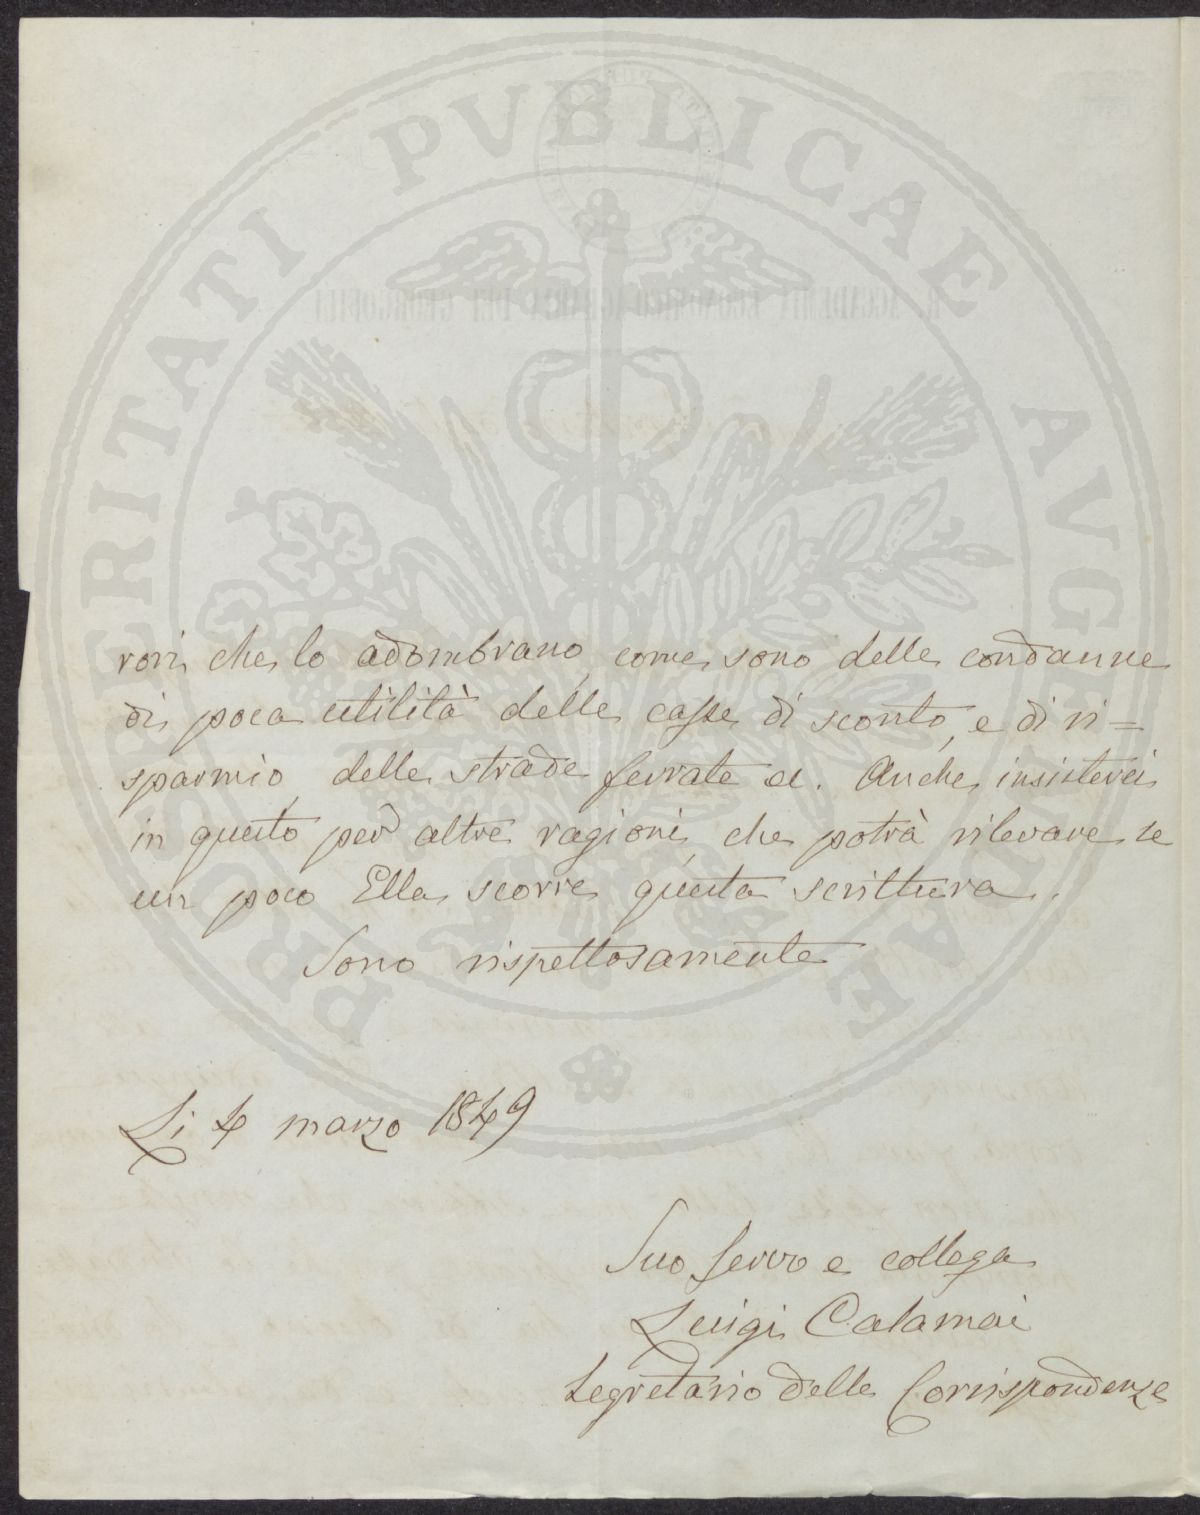 PROSPERITATI PVBLICAE AVGENDAE
R. ACCADEMIA ECONOMICO-AGRARIA DEI GEORGOFILI
rori che lo adombrano, come sono delle condanne
di poca utilità delle casse di sconto, e di ri=
sparmio, delle strade ferrate ec. Anche insisterei
in questo per altre ragioni, che potrà rilevare se
un poco Ella scorre questa scrittura.
Sono rispettosamente
Li 4 marzo 1849
Suo servo e collega
Luigi Calamai
Segretario delle Corrispondenze